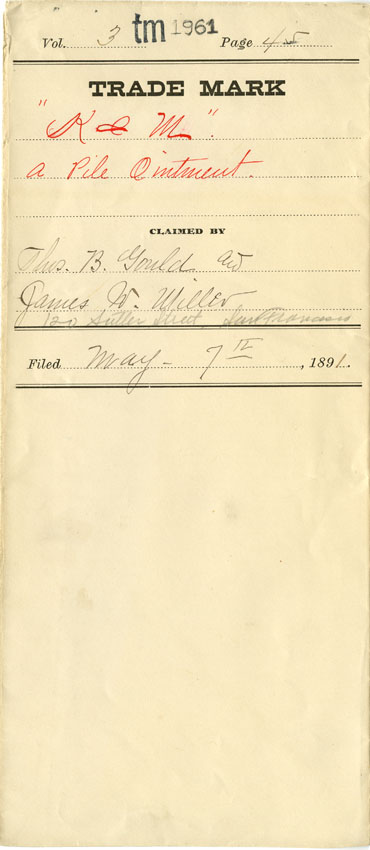 Vol. 3 tm 1961 Page 45
TRADE MARK
"K & M."
a Pile Ointment.
CLAIMED BY
Thos. B. Gould and
James W. Miller
120 Sutter Street San Francisco
Filed May 7th, 1891.